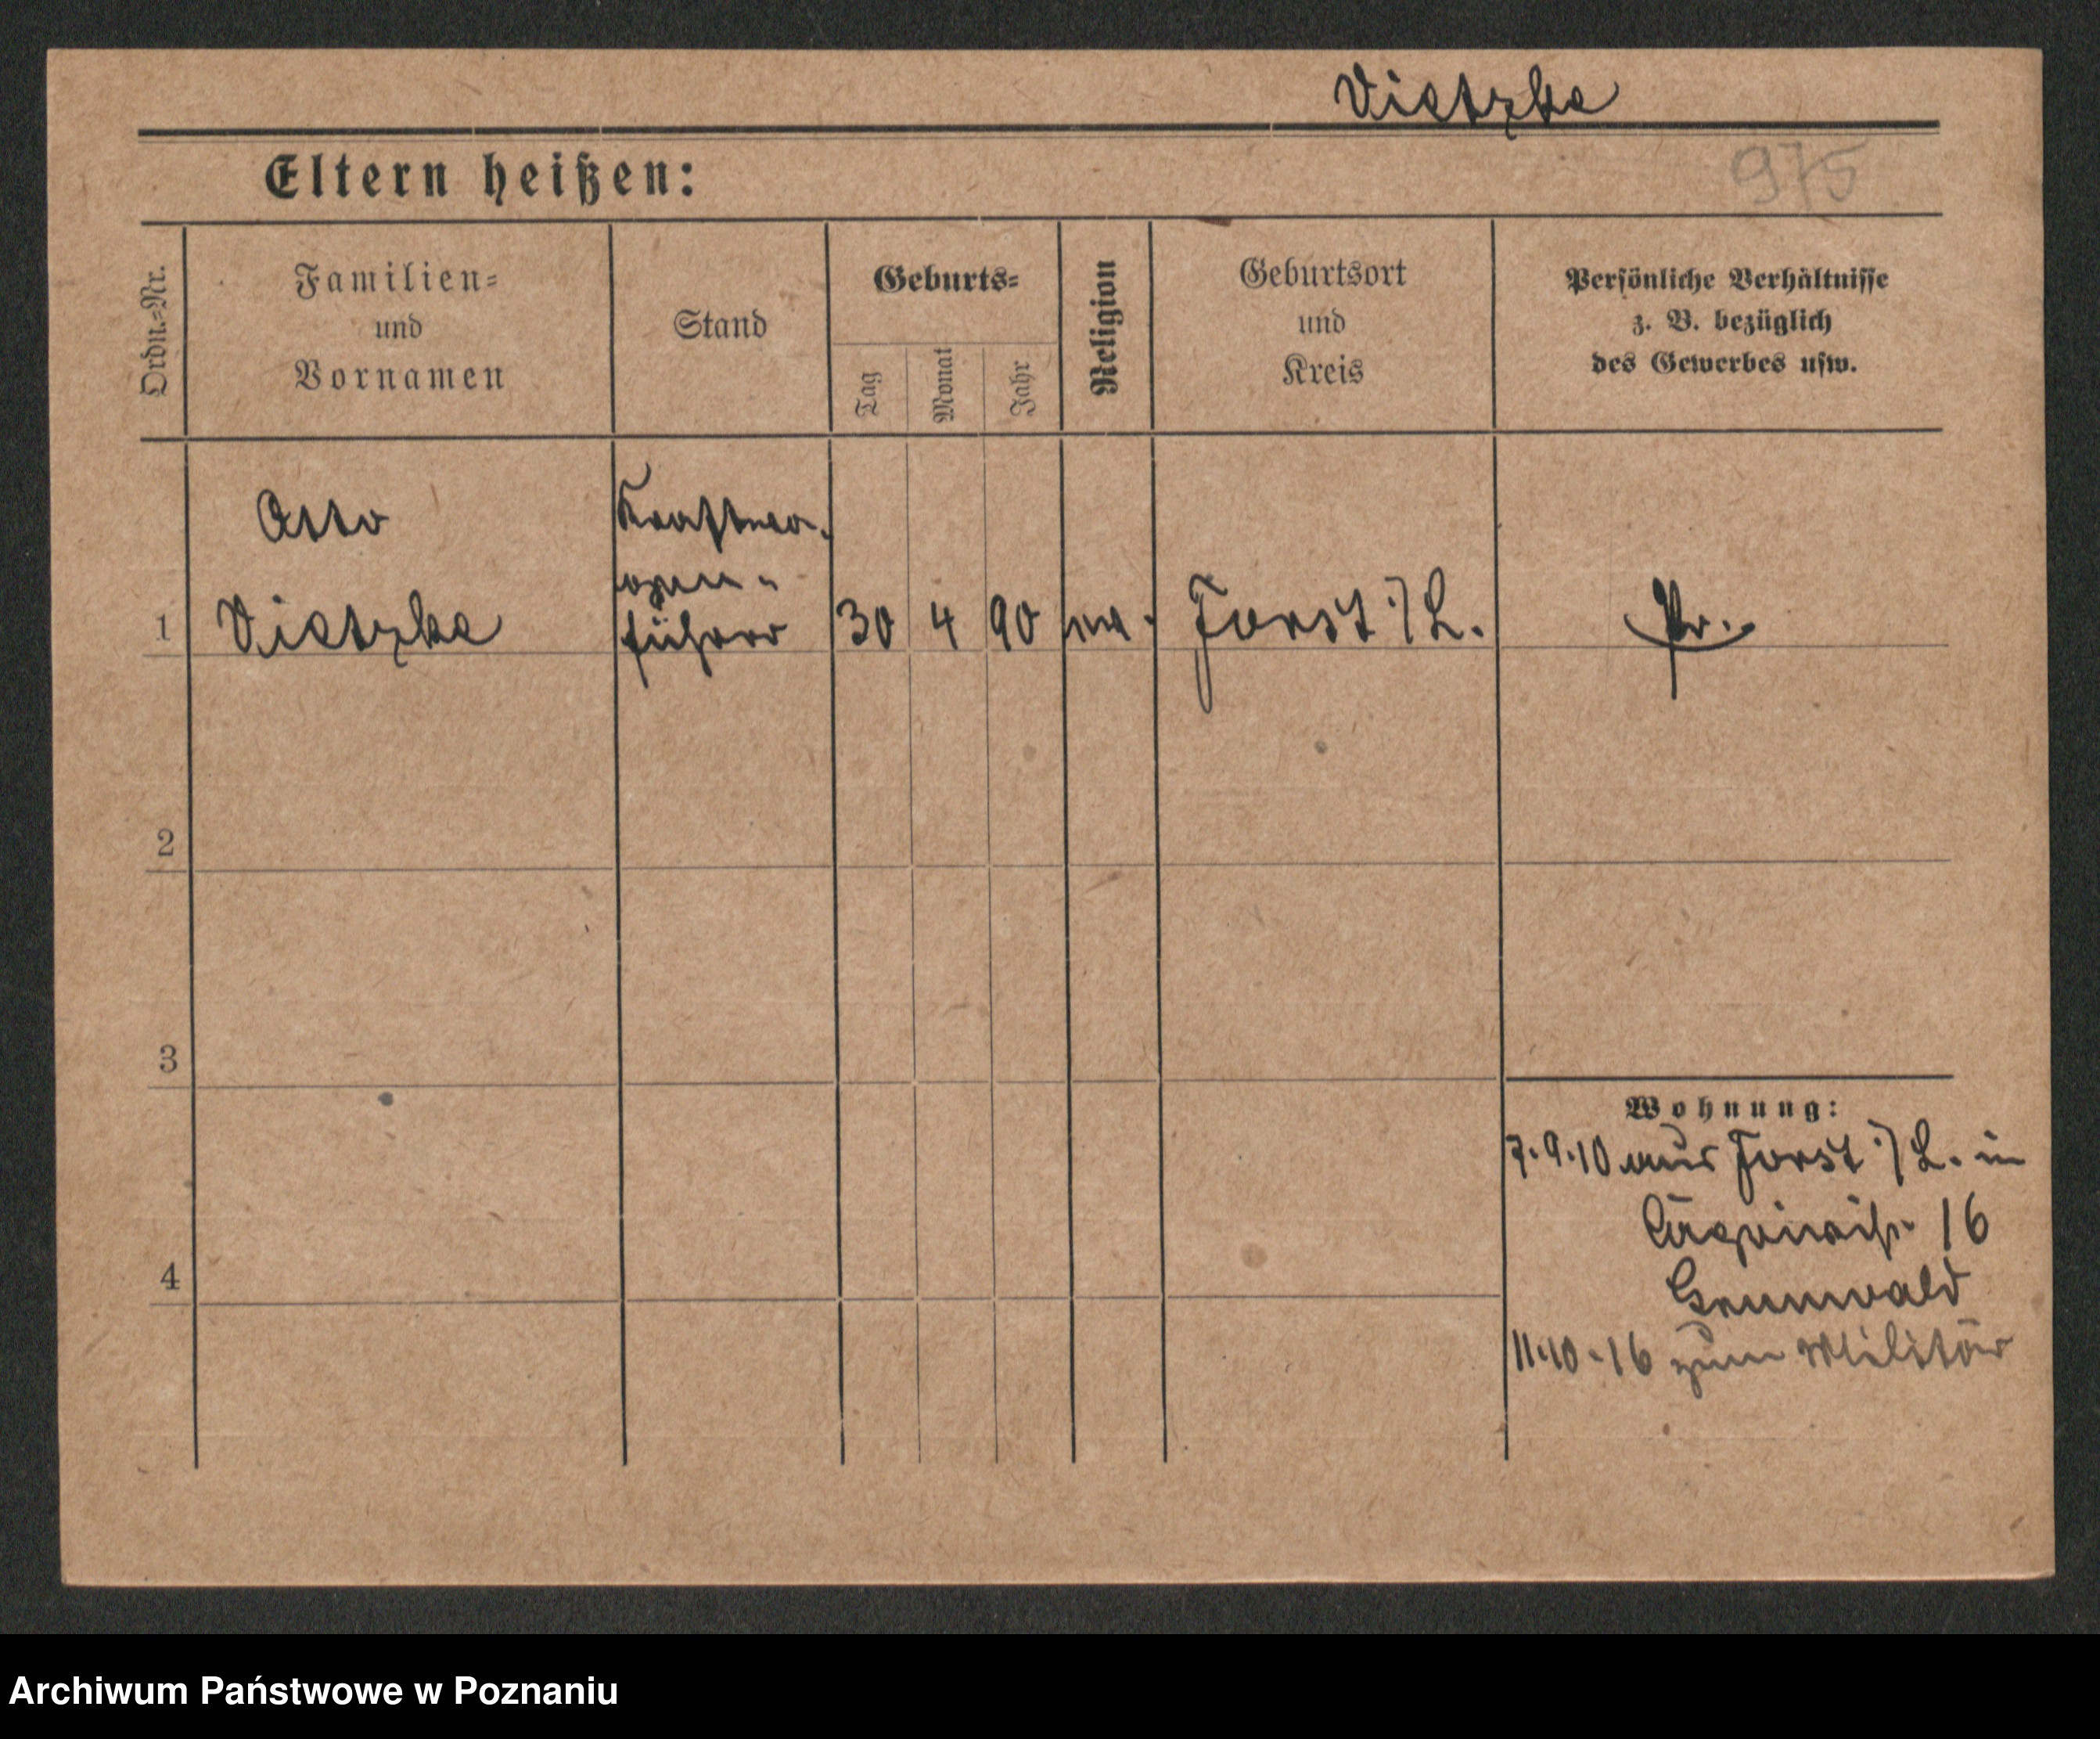 Vietzke
Eltern heißen:
975
Ordn.-Nr.
Familien-
und
Vornamen
Stand
Geburts-
Tag
Monat
Jahr
Religion
Geburtsort
und
Kreis
Persönliche Verhältnisse
z. B. bezüglich
des Gewerbes usw.
Otto
Vietzke
Kraftwa-
gen-
führer
1
30
4
90
Forst i/L.
Pr.
2
3
4
Wohnung:
7.9.10 aus Forst i/L. in
16
Grunwald
11.10.16 zum Militär
Archiwum Państwowe w Poznaniu